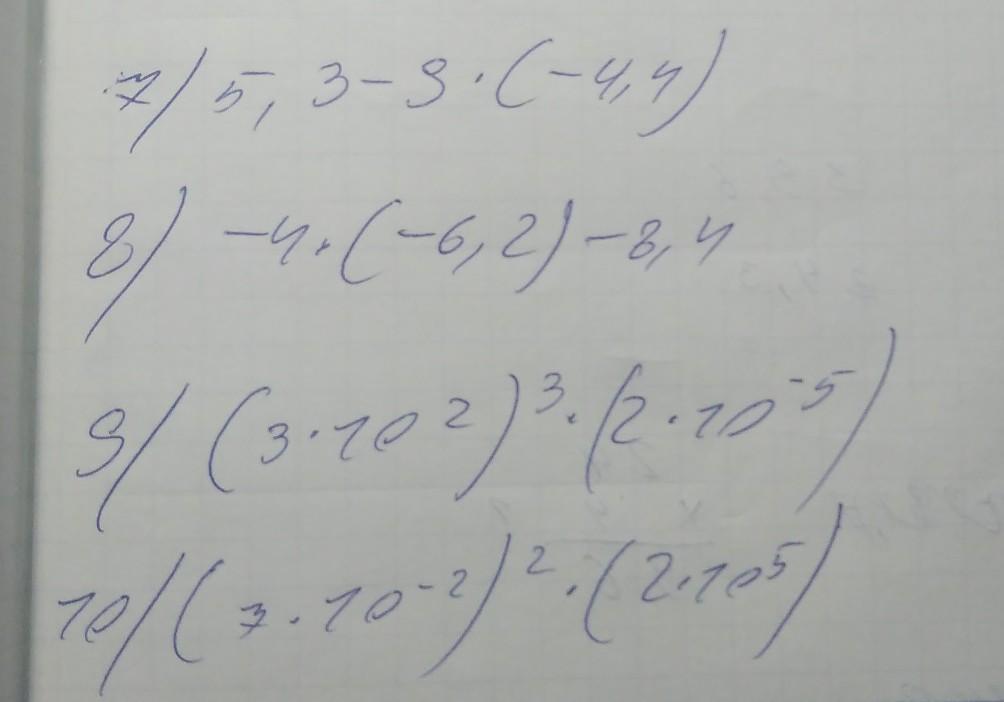 7) 5,3-9·(-4,4)
8) -4·(-6,2)-8,4
9) (3·10²)³·(2·10⁻⁵)
10) (7·10⁻²)²·(2·10⁵)